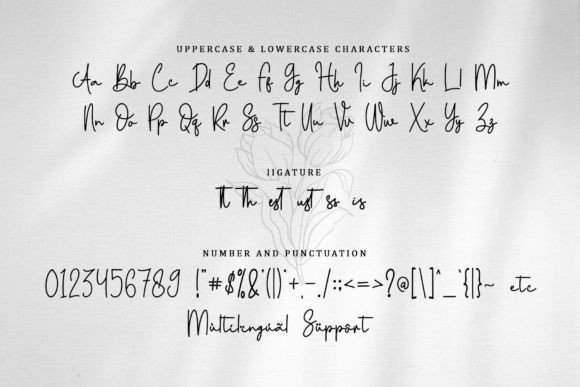 UPPERCASE & LOWERCASE CHARACTERS
Aa Bb Cc Dd Ee Ff Gg Hh Ii Jj Kk Ll Mm
Nn Oo Pp Qq Rr Ss Tt Uu Vv Ww Xx Yy Zz
lIGATURE
tt th est ust ss is
NUMBER AND PUNCTUATION
0123456789 !"#$%&'(|)*+,-./:;<=>?@[\]^_`{|}~ etc
Mùltilingùál Sùpport